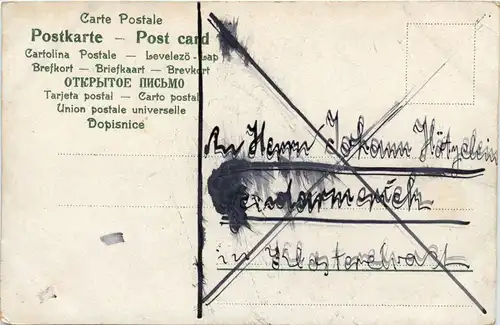 Carte Postale
Postkarte — Post card
Cartolina Postale — Levelező-Lap
Brefkort — Briefkaart — Brevkort
ОТКРЫТОЕ ПИСЬМО
Tarjeta postal — Carto postal
Union postale universelle
Dopisnice
An Herrn Johann
in